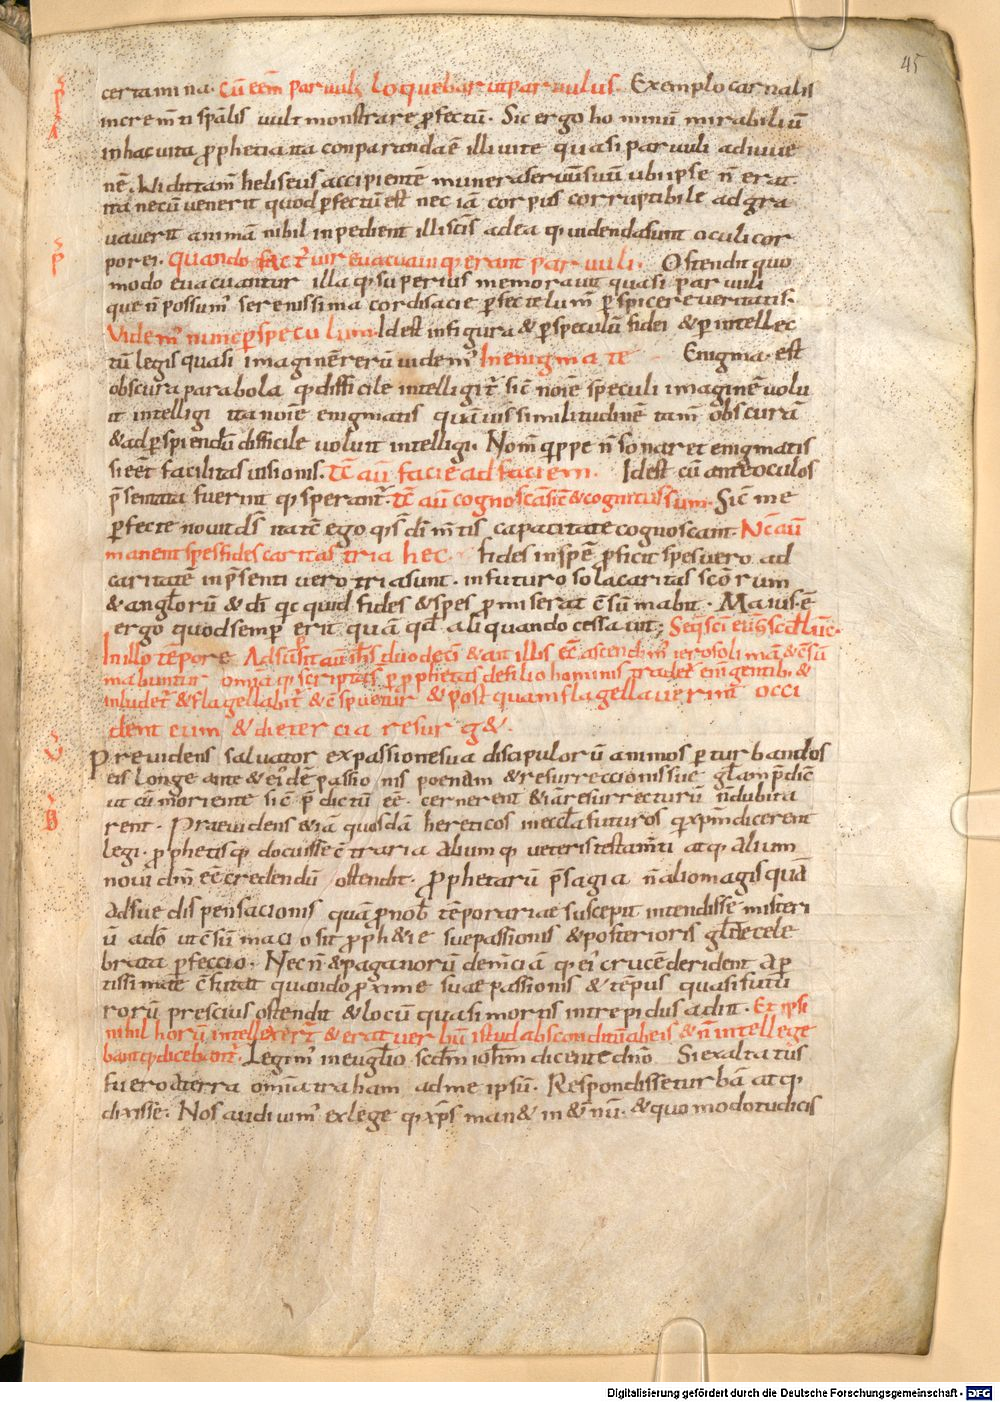 45
certamina. Cū eēm paruul, loquebar ut paruulus. Exemplo carnalis
increm̄ti sp̄alis uult monstrare p̄fectū. Sic ergo hominū mirabiliū
in hac uita p̄phetia ita conparanda ē illi uite quasi paruuli ad uiue
nē. Ui dictam̄ heliseus accipientē munera seruū suū ubi ipse n̄ erat.
ita nec cū uenerit quod p̄fectū est nec iā corpus corruptibile adgra
uauerit animā nihil inpedient illi sc̄is ad ea q; uidenda sunt oculi cor
porei. Quando fac̄t' uir euacuaui q; erant paruuli. Ostendit quo
modo euacuantur illa q; superius memorauit quasi paruuli
que n̄ possum' serenissima cordis acie p̄fecte lum̄ p̄spicere ueritatis.
Videm' nunc p̄ speculum. Id est in figura & p̄ speculū fidei & p̄ intellec
tū legis quasi imaginē rerū uidem' In enigmate Enigma. est
obscura parabola q; difficile intelligit' sic̄ noīe speculi imaginē uolu
it intelligi ita noīe enigmatis quāuis similitudinē tam̄ obscurā
& ad p̄spiciendū difficile uoluit intelligi. Nom̄ q̄ppe n̄ sonaret enigmatis
si eēt facilitas uisionis. Tc̄ aū facie ad faciem. Id est cū ante oculos
p̄sentata fuerint q; sperant'. Tc̄ aū cognoscā sic̄ & cognitus sum. Sic̄ me
p̄fecte nouit ds̄ ita tc̄ ego q; s̄ di m̄tis capacitate cognoscam. Nc̄ aū
manent spes fides caritas tria hec. Fides in spē p̄ficit spes uero ad
caritatē in p̄senti uero tria sunt. in futuro sola caritas sc̄orum
& anglorū & di qicquid fides & spes p̄miserat c̄sūmabit. Maius ē
ergo quod semp̄ erit quā qd̄ aliquando cessauit; Seq̄ sci euḡ scd̄ luc̄.
In illo tēpore Adsūsit aū ih̄s duodeci & ait illis ecc̄ ascendim' ierosolimā & c̄sū
mabuntur om̄ia q; scripta s̄ p̄ p̄phetas de filio hominis tradet' eni gentib; &
inludet' & flagellabit' & c̄spuetur & post quam flagellauerint occi
dent eum & die tercia resurg&.
Preuidens saluator ex passione sua discipulorū animos p̄turbandos
eis longe ante & ei'dē passionis poenam & resurreccionis sue glam p̄dic̄
ut cū moriente sic̄ p̄dictū eē. cernerent & iā resurrecturū n̄ dubita
rent. Praeuidens & iā quosdā hereticos in eccl̄a futuros q; xp̄m dicerent
legi. p̄phetisq; docuisse c̄traria Alium q; ueteris testam̄ti atq; alium
noui dm̄ eē credendū ostendit. P̄phetarū p̄sagia n̄ alio magis quā
ad sue dispensacionis quā p̄ nob' tēporariae suscepit intendisse misteri
ū ad oū ut c̄sūmacio sit p̄ph&ie sue passionis & posterioris glīe cele
brata p̄feccio. Nec n̄ & paganorū dem̄ciā q; ei' crucē derident ap̄
tissimae c̄futat quando p̄xime suae passionis & tēpus quasi futu
rorū prescius ostendit & locū quasi mortis intrepidus adiit. Et ipsi
nihil horū intellexer̄t & erat uerbū istud absconditū ab eis & n̄ intellege
bant q; dicebant'. Legim' in euglio scdm iohm dicente dno Si exaltatus
fuero a terra om̄ia traham ad me ipsū. Respondisse turbā atq;
dixisse. Nos audiuim' ex lege q; xp̄s man& in &nū. & quomodo tu dicis
Digitalisierung gefördert durch die Deutsche Forschungsgemeinschaft - DFG